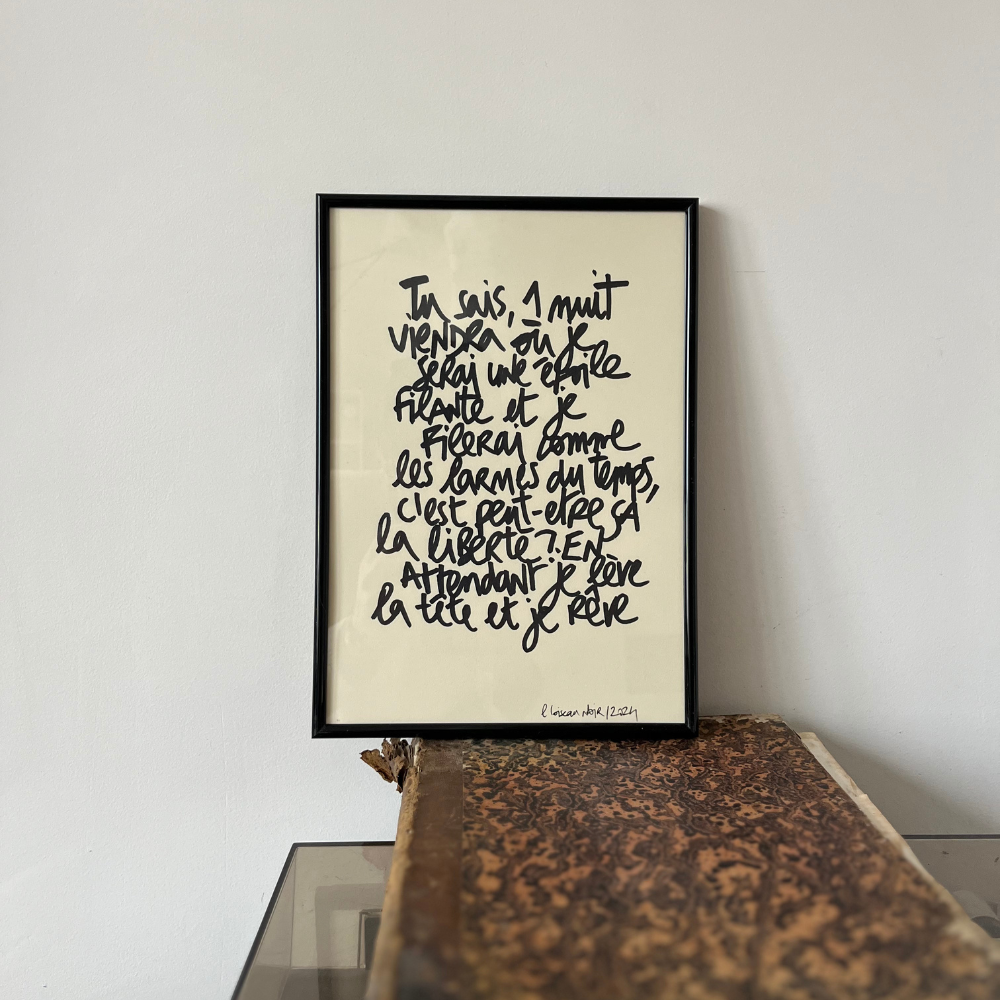 Tu sais, 1 nuit
viendra où je
serai une étoile
filante et je
filerai comme
les larmes du temps,
c'est peut-etre ça
la liberté ? EN
Attendant je lève
la tête et je rêve
l'oiseau noir/2024